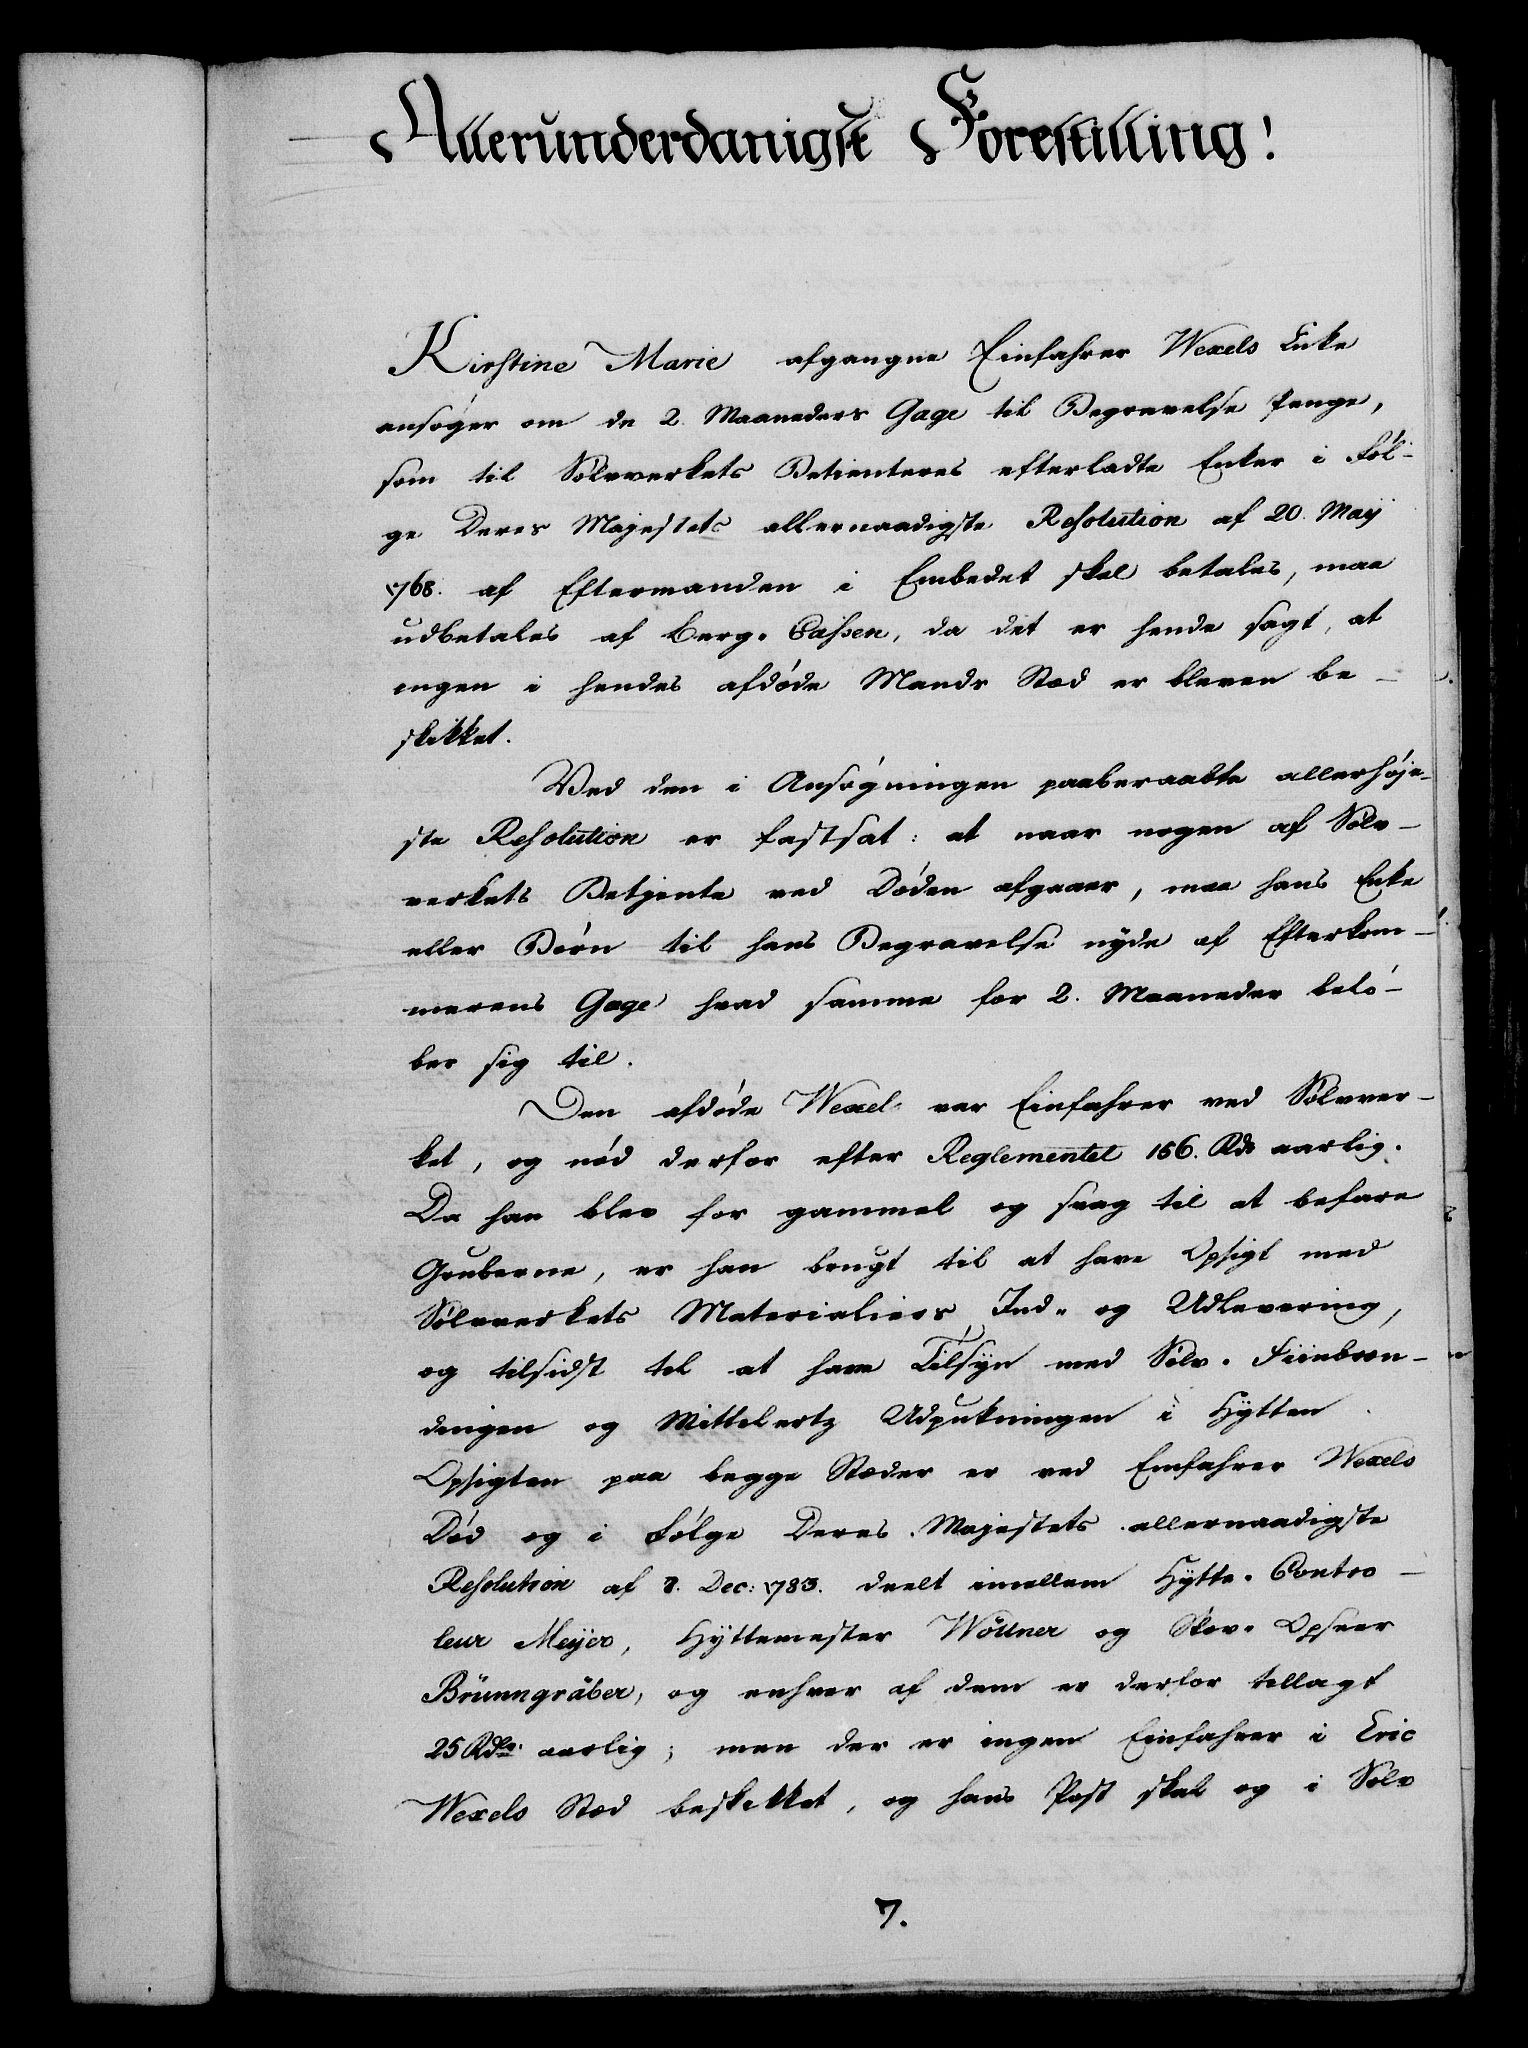 Allerunderdanigst Forestilling!
Kirstine Marie afgangne Einfahrer Wexels Enke
ansøger om de 2 Maaneders Gage til Begravelse Penge,
som til Sølvverkets Betienteres efterladte Enker i Føl-
ge Deres Majestets allernaadigste Resolution af 20. Maij
1768. af Eftermanden i Embedet skal betales, maa
udbetales af Berg-Cassen, da det er hende sagt, at
ingen i hendes afdøde Mands Stæd er bleven be-
skikket.
Ved den i Ansøgningen paaberaabte allerhøje-
ste Resolution er fastsat: at naar nogen af Sølv-
verkets Betjente ved Døden afgaaer, maa hans Enke
eller Børn til hans Begravelse nyde af Efterkom-
merens Gage hvad samme for 2. Maaneder belø-
ber sig til.
Den afdøde Wexel var Einfahrer ved Sølvver-
ket, og nød derfor efter Reglementet 156. Rdr aarlig.
Da han blev for gammel og svag til at befare
Gruberne, er han brugt til at have Opsigt med
Sølvverkets Materialiers Ind- og Udlevering,
og tilsidst til at have Tilsyn med Sølv-Fiinbræn-
dingen og Mittelertz Udpukningen i Hytten.
Opsigten paa begge Stæder er ved Einfahrer Wexels
Død og i Følge Deres Majestets allernaadigste
Resolution af 8. Dec: 1783. deelt imellem Hytte-Contro-
leur Meijer, Hyttemester Wöllner og Skov-Opseer
Brünngräber, og enhver af dem er derfor tillagt
25 Rdlr. aarlig; men der er ingen Einfahrer i Eric
Wexels Stæd beskikket, og hans Post skal og i Sølv
7.